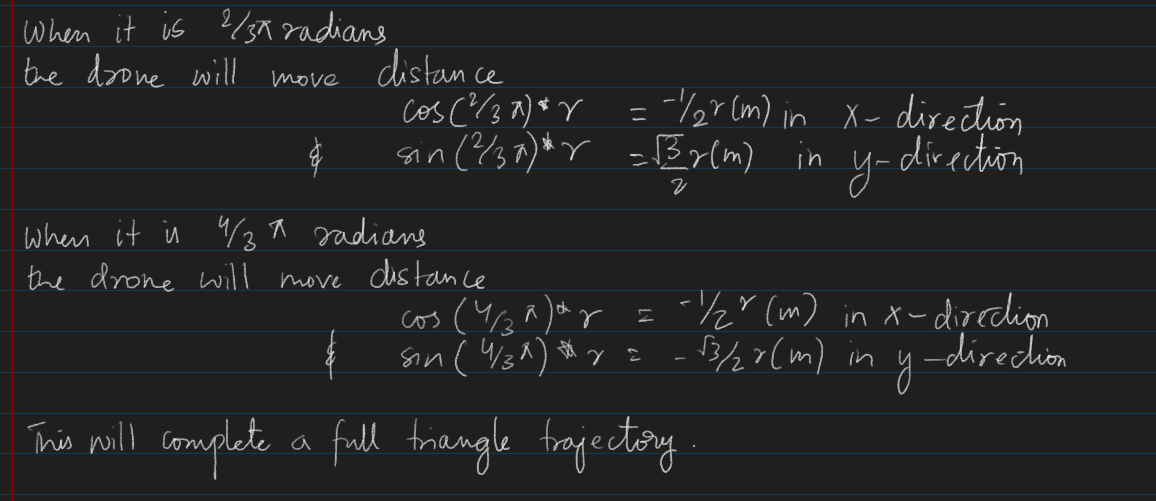 When it is 2/3π radians
the drone will move distance
cos(2/3 π)* r = -1/2 r (m) in x-direction
& sin (2/3 π)* r = √3/2 r (m) in y-direction
When it is 4/3 π radians
the drone will move distance
cos (4/3 π)* r = -1/2 r (m) in x-direction
& sin (4/3 π) * r = -√3/2 r (m) in y-direction
This will complete a full triangle trajectory.